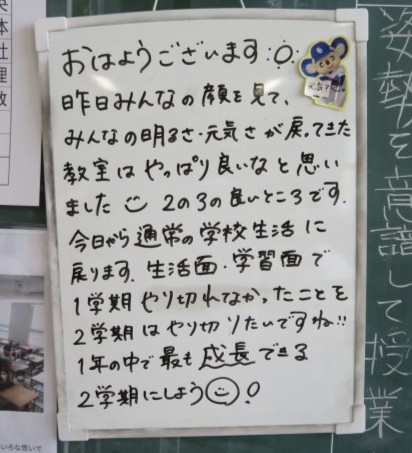 おはようございます
昨日みんなの顔を見て、
みんなの明るさ・元気さが戻ってきた
教室はやっぱり良いなと思い
ました 2の3の良いところです。
今日から通常の学校生活に
戻ります。生活面・学習面で
1学期やり切れなかったことを
2学期はやり切りたいですね!!
1年の中で最も成長できる
2学期にしよう!
姿勢を意識して授業
体
社
理
いろな思いで